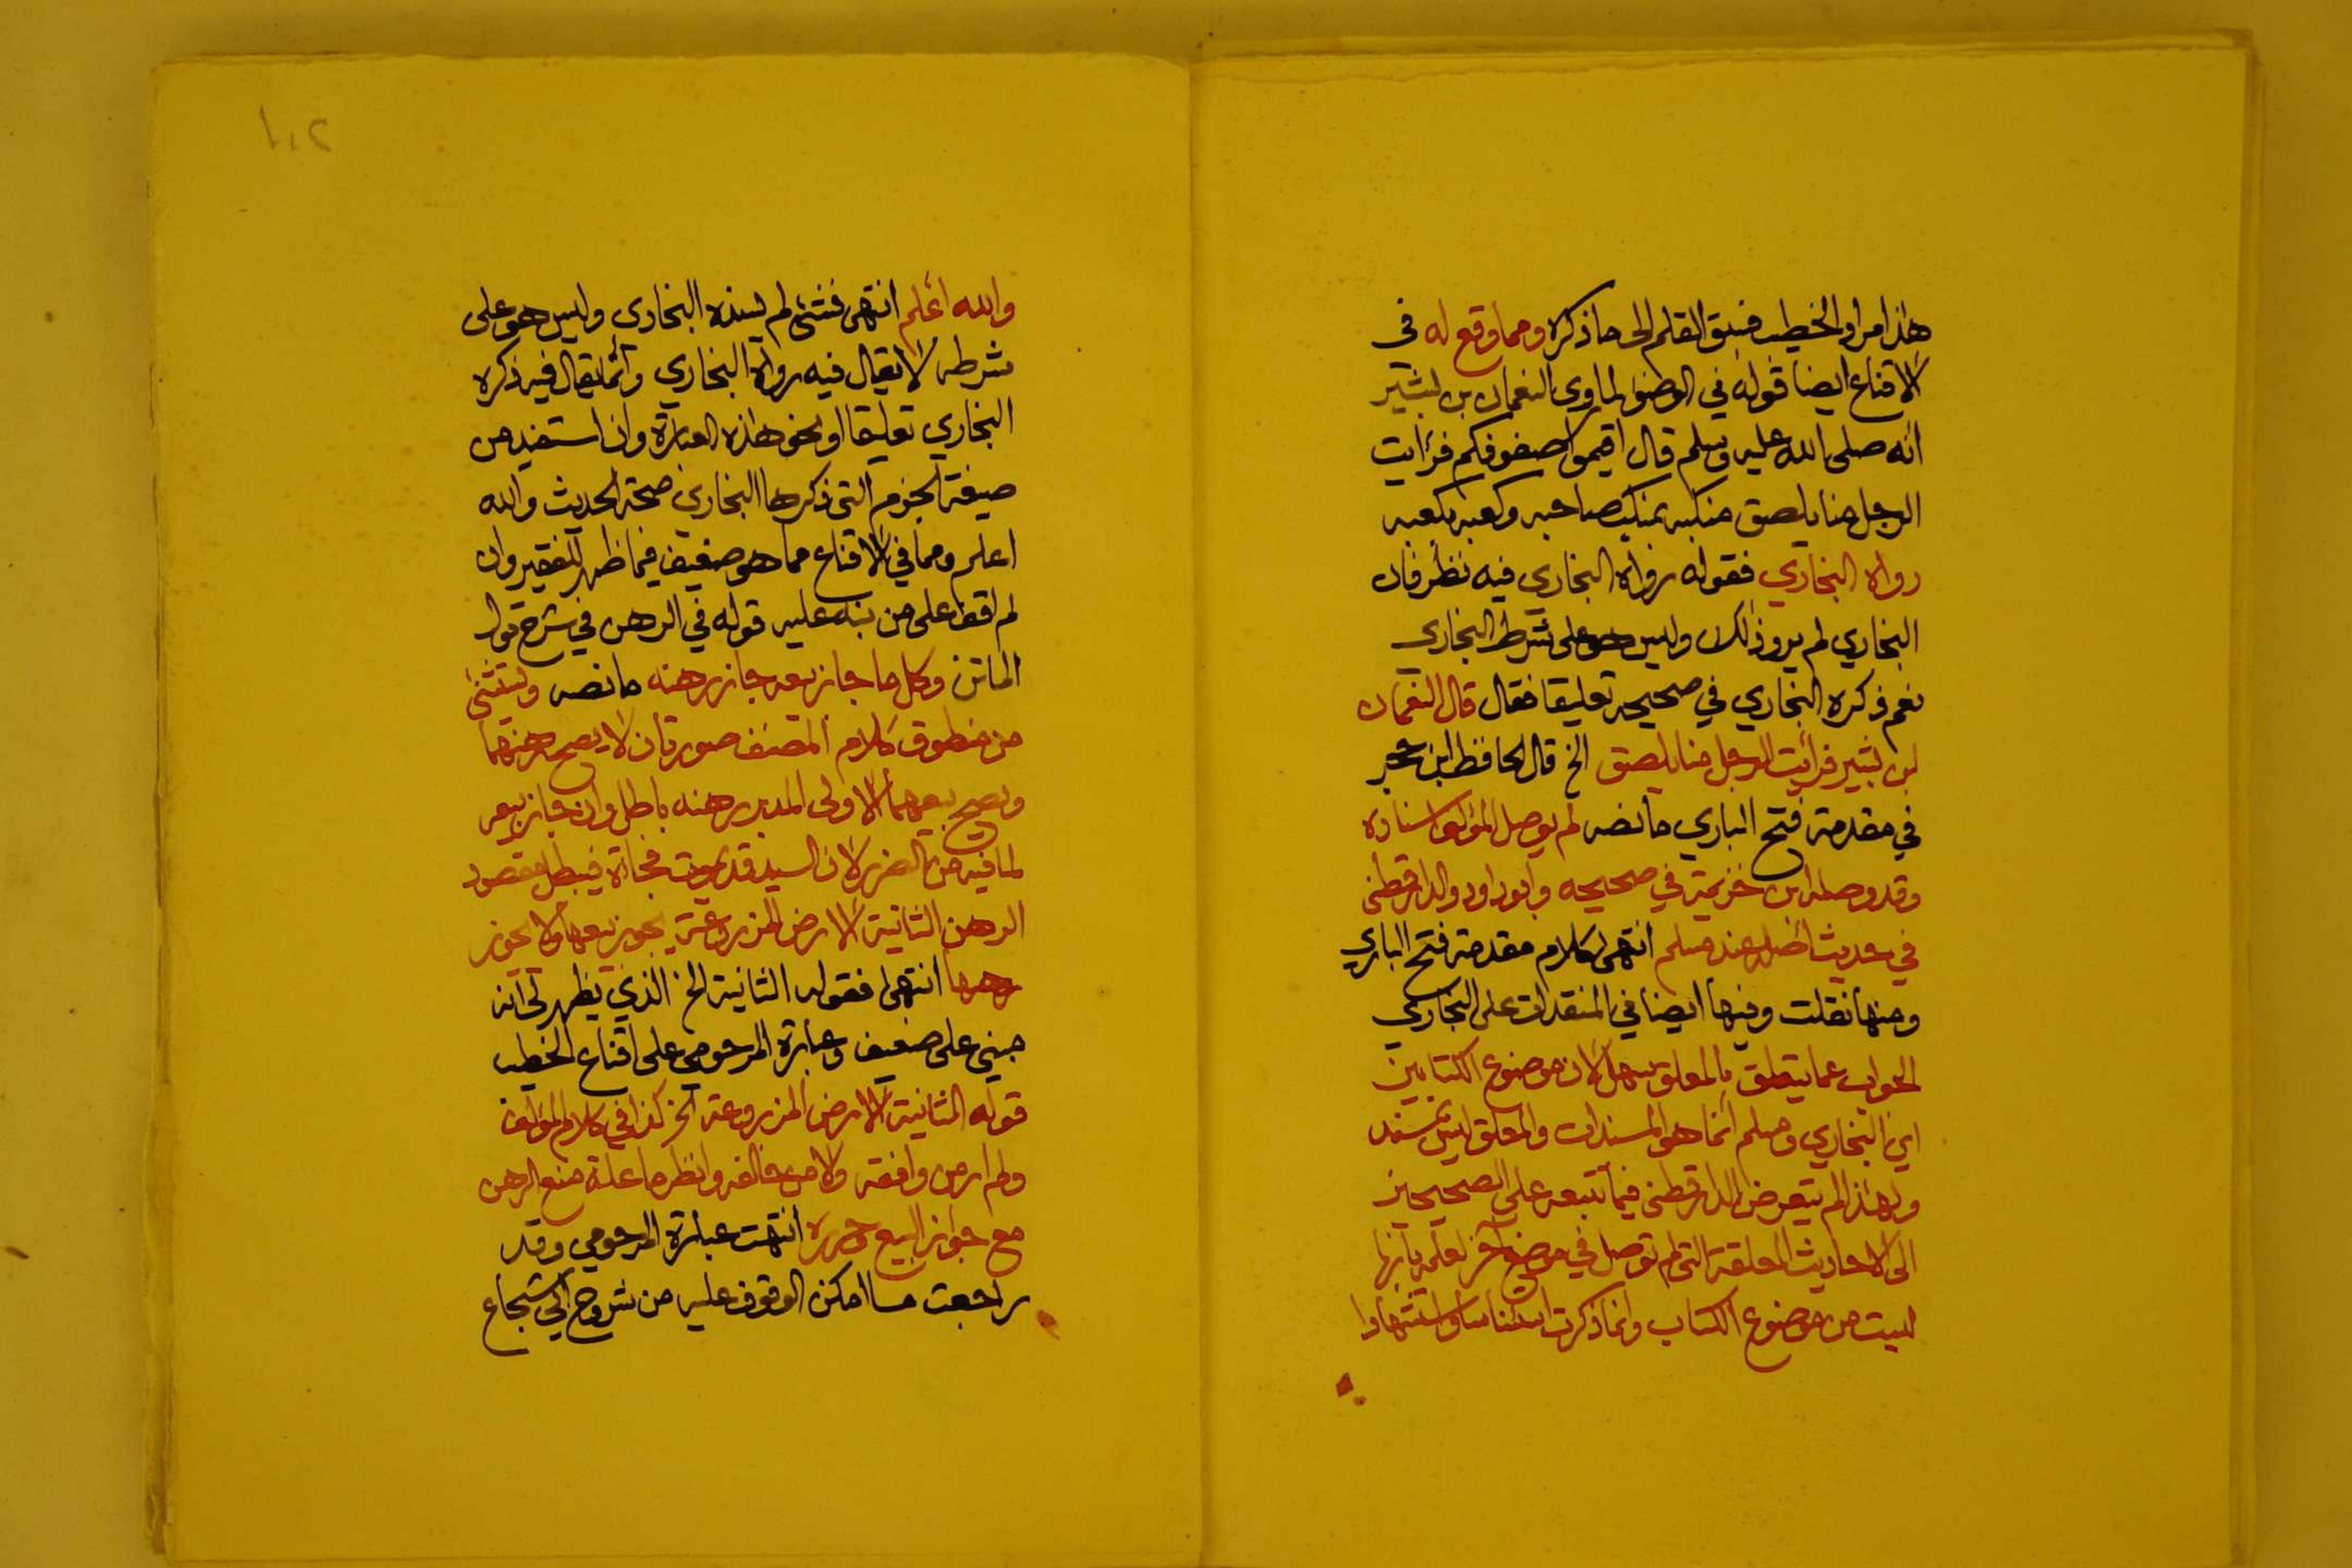 هذا مراد الخطيب فسبق القلم الى ما ذكره ومما وقع له فى
الاقناع ايضا قوله في الوضوء لما روى النعمان بن بشير
انه صلى الله عليه وسلم قال اقيموا صفوفكم فرأيت
الرجل منا يلصق منكبه بمنكب صاحبه وكعبه بكعبه
رواه البخاري فقوله رواه البخارى فيه نظر فان
البخاري لم يرو ذلك وليس هو على شرط البخاري
نعم ذكره البخاري في صحيحه تعليقا فقال قال النعمان
بن بشير فرأيت الرجل منا يلصق الخ قال الحافظ ابن حجر
في مقدمة فتح الباري ما نصه لم يوصل المؤلف اسناده
وقد وصله ابن خزيمة في صحيحه وابوداود والدارقطنى
في حديث اصله عند مسلم انتهى كلام مقدمة فتح الباري
ومنها نقلت وفيها ايضا في المنتقدات على البخاري
الجواب عما يتعلق بالمعلق سهل لان موضوع الكتابين
اى البخاري ومسلم انما هو المسندات والمعلق ليس بمسند
ولهذا لم يتعرض الدارقطنى فيما تتبعه على الصحيحين
الى الاحاديث المعلقة التى لم توصل في موضع آخر لعلمه بانها
ليست من موضوع الكتاب وانما ذكرت استئناسا واستشهادا
١٠٢
والله اعلم انتهى فشئ لم يسنده البخارى وليس هو على
شرطه لا يقال فيه رواه البخاري وانما يقال فيه ذكره
البخاري تعليقا او نحو هذه العبارة وان استفيد من
صيغة الجزم التى ذكرها البخارى صحة الحديث والله
اعلم ومما في الاقناع مما هو ضعيف فيما ظهر للفقير وان
لم اقف على من نبه عليه قوله في الرهن في شرح قول
الماتن وكل ما جاز بيعه جاز رهنه ما نصه ويستثنى
من منطوق كلام المصنف صورتان لا يصح رهنهما
ويصح بيعهما الاولى المدبر رهنه باطل وان جاز بيعه
لما فيه من الغرر لان السيد قد يموت فجأة فيبطل مقصود
الرهن الثانية الارض المزروعة يجوز بيعها ولا يجوز
رهنها انتهى فقوله الثانية الخ الذي يظهر لى انه
مبنى على ضعيف وعبارة المرحومي على اقناع الخطيب
قوله الثانية الارض المزروعة الخ كذا في كلام المؤلف
ولم ار من وافقه ولا من خالفه وانظر ما علة منع الرهن
مع جواز البيع حرره انتهت عبارة المرحومي وقد
راجعت ما امكن الوقوف عليه من شروح ابي شجاع